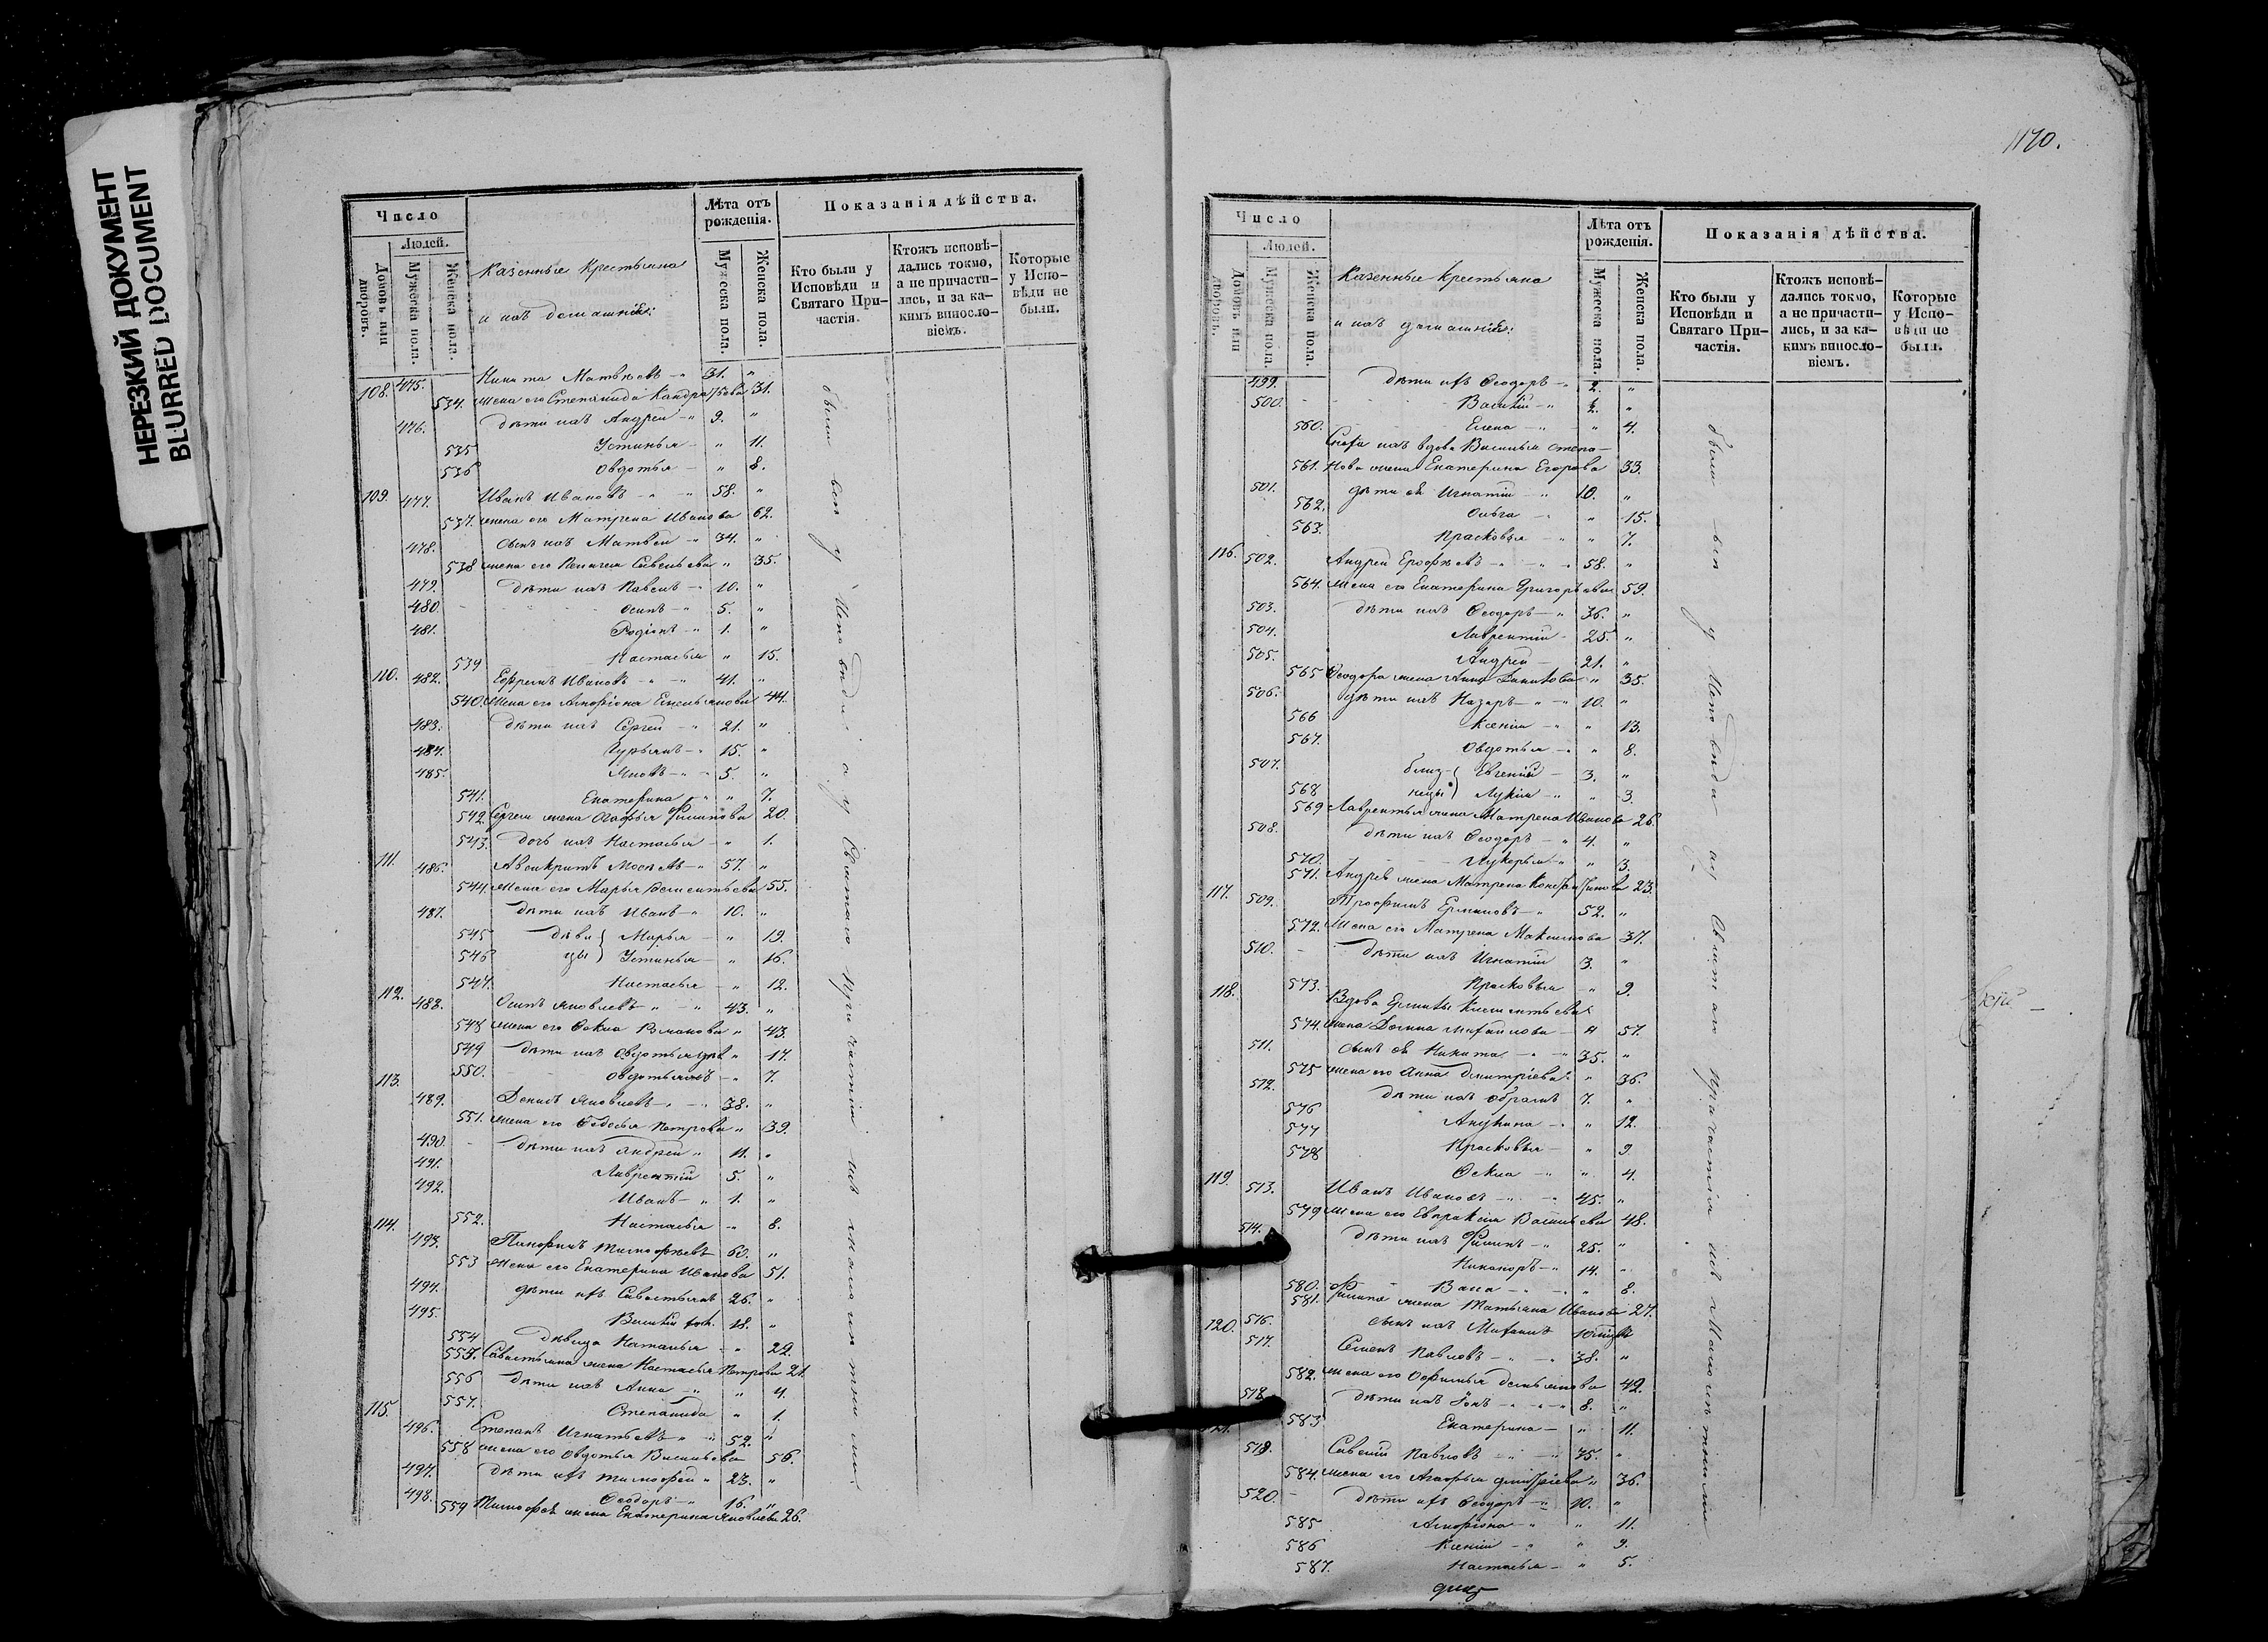 НЕРЕЗКИЙ ДОКУМЕНТ
BLURRED DOCUMENT
Число
Людей.
Домовъ или дворовъ.
Мужеска пола.
Женска пола.
Казенные Крестьяна
и ихъ домашнія:
Лѣта отъ рожденія.
Мужеска пола.
Женска пола.
Показанія дѣйства.
Кто были у Исповѣди и Святаго Причастія.
Ктожъ исповѣдались токмо, а не причастились, и за какимъ винословіемъ.
Которые у Исповѣди не были.
108. 475. Никита Матвѣевъ -„ 31. „
534. жена его Степанида Кандратьева 31.
476. дѣти ихъ Андрей -„ 9. „
535 Устинья - „ 11.
536 Овдотья - „ 8.
109. 477. Иванъ Ивановъ -„ -„ 58. „
537. жена его Матрена Иванова 62.
478. сынъ ихъ Матвей -„ 34. „
538 жена его Пелагея Савельева „ 35.
479. дѣти ихъ Павелъ -„ 10. „
480. Осипъ -„ 5. „
481. Родіонъ -„ 1. „
539 Настасья „ 15.
110. 482. Ефремъ Ивановъ -„ -„ 41. „
540. жена его Агафіона Емельянова 44.
483. дѣти ихъ Сергей -„ 21. „
484. Гурьянъ -„ 15. „
485. Яковъ -„ - 5. „
541. Екатерина -„ „ 7.
542. Сергея жена Агафья Филипова 20.
543. дочь ихъ Настасья - „ 1.
111. 486. Авсикритъ Мосеевъ -„ 57. „
544. жена его Марья Деменьтьева 55.
487. дѣти ихъ Иванъ -„ 10. „
545 дѣви- Марья - „ 19.
546 цы Устинья - „ 16.
547. Настасья - „ 12.
112. 488. Осипъ Яковлевъ -„ -„ 43. „
548 жена его Фекла Романова „ 43.
549 дѣти ихъ Овдотья „ 17.
550. Овдотья - „ 7.
113. 489. Денисъ Яковлевъ -„ -„ 38. „
551. жена его Федосья Петрова „ 39.
490. дѣти ихъ Андрей „ 11. „
491. Лаврентій 5. „
492. Иванъ -„ 1. „
552. Настасья „ 8.
114. 493. Панфилъ Тимофѣевъ - 60. „
553 жена его Екатерина Иванова 51.
494. дѣти ихъ Савастьянъ 26. „
495. Василій 18. „
554 дѣвица Наталья - „ 22.
555. Савастьяна жена Настасья Петрова 21.
556 дѣти ихъ Анна -„ „ 4.
557. Степанида „ 1.
115. 496. Степанъ Игнатьевъ „ -„ 52. „
558 жена его Овдотья Васильева 56.
497. дѣти ихъ Тимофей „ 23. „
498. Феодоръ -„ 16. „
559 Тимофея жена Екатерина Яковлева 26.
были всѣ у Исповѣди а у Святаго причастія
1170.
Число
Людей.
Домовъ или дворовъ.
Мужеска пола.
Женска пола.
Казенные Крестьяна
и ихъ домашнія:
Лѣта отъ рожденія.
Мужеска пола.
Женска пола.
Показанія дѣйства.
Кто были у Исповѣди и Святаго Причастія.
Ктожъ исповѣдались токмо, а не причастились, и за какимъ винословіемъ.
Которые у Исповѣди не были.
499. дѣти ихъ Феодоръ - 2. „
500. Василій -„ „
560. Елена -„ - „ 4.
Сноха ихъ вдова Василья Степа-
561. нова жена Екатерина Егорова 33.
501. дѣти ея Игнатій -„ 10. „
562. Ольга -„ „ 15.
563. Прасковья -„ „ 7.
116. 502. Андрей Ерофѣевъ -„ -„ 58. „
564. жена его Екатерина Григорьева 59.
503. дѣти ихъ Феодоръ -„ 36. „
504. Лаврентій - 25. „
505. Андрей - 21. „
565 Феодора жена Анна „ 35.
506. дѣти ихъ Назаръ -„ -„ 10. „
566 Ксенія -„ „ 13.
567. Овдотья -„ „ 8.
507. близ- Евгеній - 3. „
568 нецы Лукія -„ „ 3.
569 Лаврентья жена Матрена Иванова 26.
508. дѣти ихъ Феодоръ -„ 4. „
570. Лукерья -„ „ 3.
571. Андрея жена Матрена Константинова 23.
117. 509. Трофимъ Ермиловъ -„ 52. „
572. жена его Матрена Максимова 37.
510. дѣти ихъ Игнатій 3. „
573. Прасковья „ 9.
118. Вдова Климентьева
574. жена Домна Михаилова - „ 57.
511. сынъ ея Никита -„ -„ 35. „
575 жена его Анна Дмитріева „ 36.
512. дѣти ихъ Абрамъ 7. „
576 Акулина -„ „ 12.
577 Прасковья - „ 9.
578 Фекла -„ „ 4.
119. 513. Иванъ Ивановъ -„ -„ 45. „
579 жена его Евпраксія Васильева 48.
514. дѣти ихъ Филипъ -„ 25. „
Никаноръ -„ 14. „
580. Васса -„ -„ „ 8.
581. Филипа жена Татьяна Иванова 27.
516. сынъ ихъ Михаилъ
120. 517. Семенъ Павловъ -„ -„ 38. „
582. жена его Ефимья Демьянова 42.
518. дѣти ихъ -„ -„ 8. „
583 Екатерина - „ 11.
121. 519. Савелій Павловъ -„ -„ 35. „
584. жена его Агафья Дмитріева „ 36.
520. дѣти ихъ Феодоръ -„ 10. „
585 Агафіона -„ „ 11.
586 Ксенія -„ „ 9.
587. Настасья - „ 5.
были всѣ у Исповѣди а у Святаго причастія